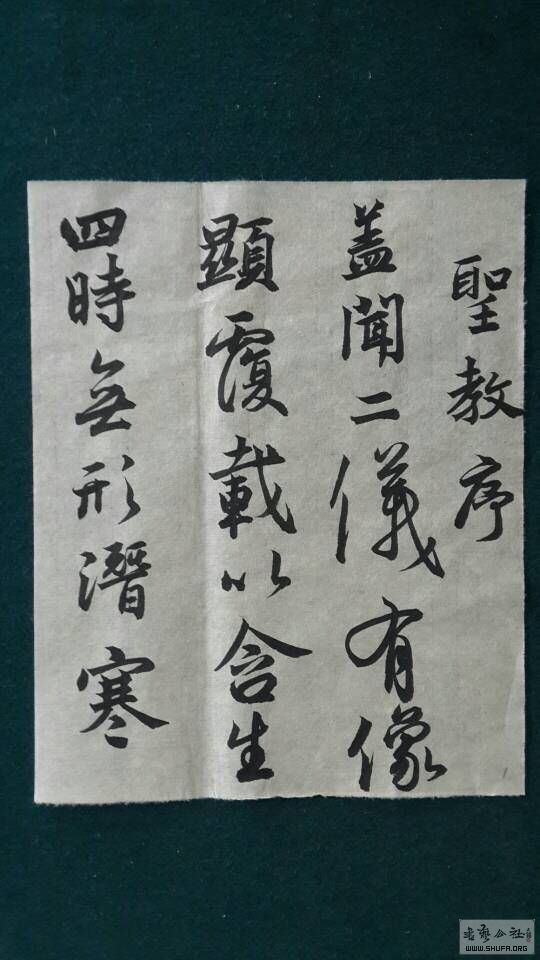 聖教序
蓋聞二儀有像
顯覆載以含生
四時無形潛寒
WWW.SHUFA.ORG